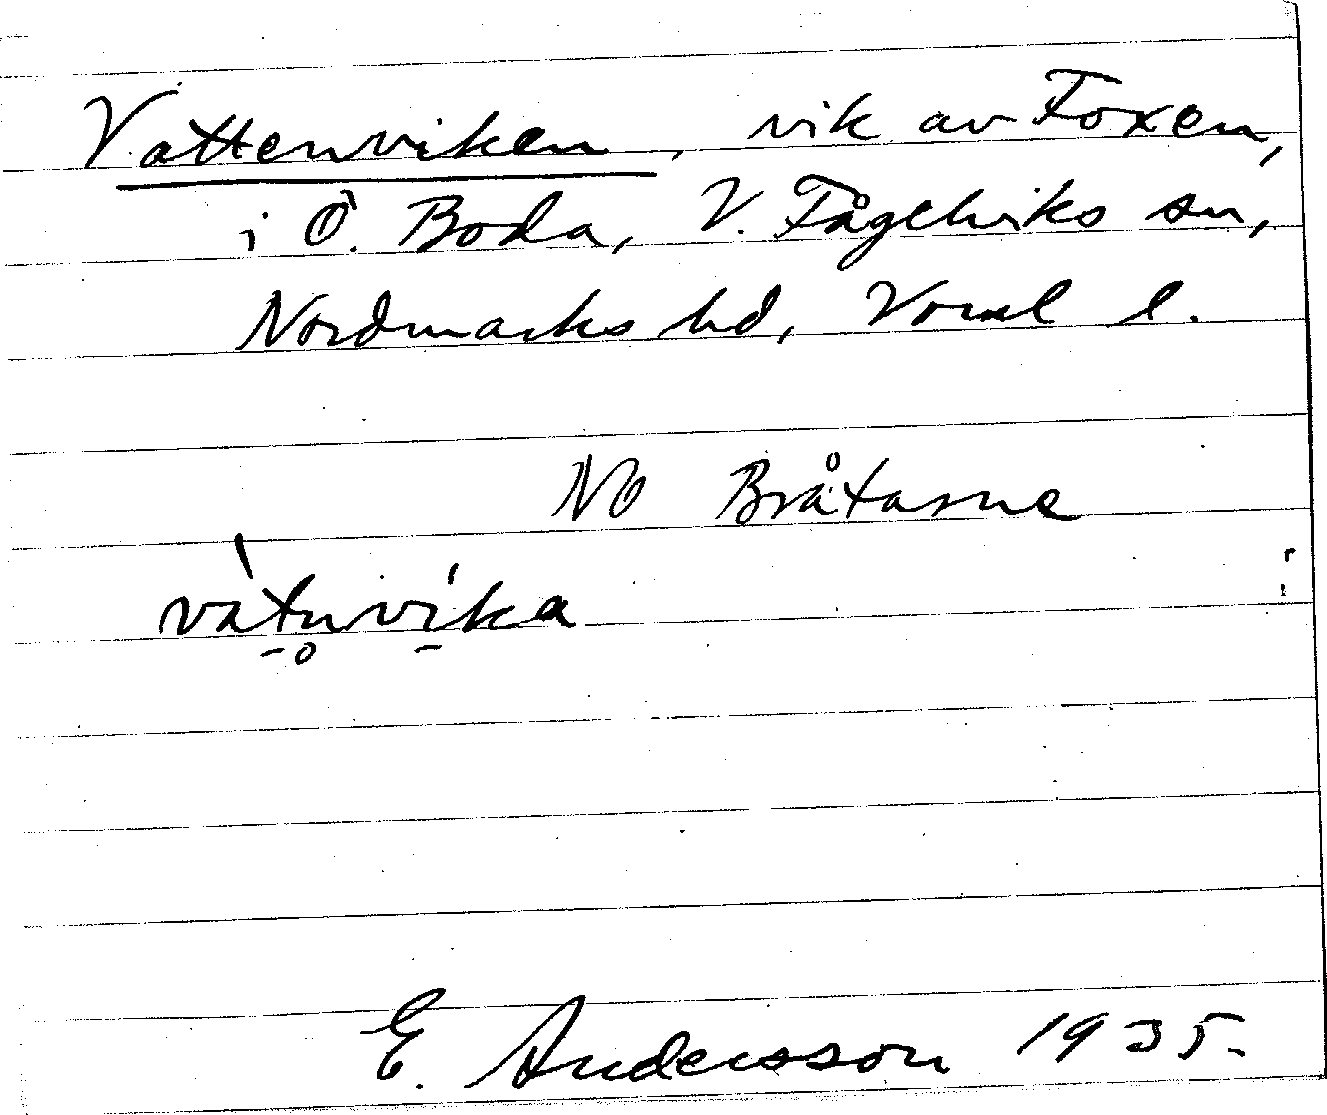 Vattenviken, vik av Foxen,
i Ö. Boda, V. Fågelviks sn,
Nordmarks hd, Värml l.
NO Bråtarne
vàt̠n̥ví̠ka
E. Andersson 1935.